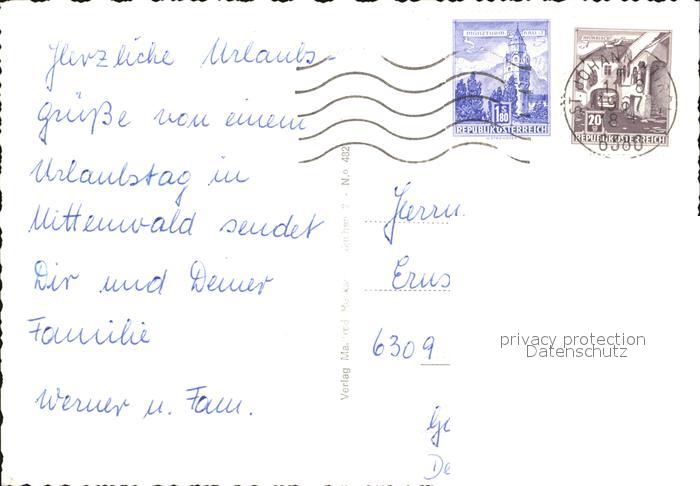 Herzliche Urlaubs-
grüße von einem
Urlaubstag in
Mittenwald sendet
Dir und Deiner
Familie
Werner u. Fam.
MÜNZTURM HALL i. T.
1.80
REPUBLIK ÖSTERREICH
20
REPUBLIK ÖSTERREICH
ST. JOHANN
6380
Verlag Manfred
N.o 482
Herrn
Erns
6309
privacy protection
Datenschutz
De